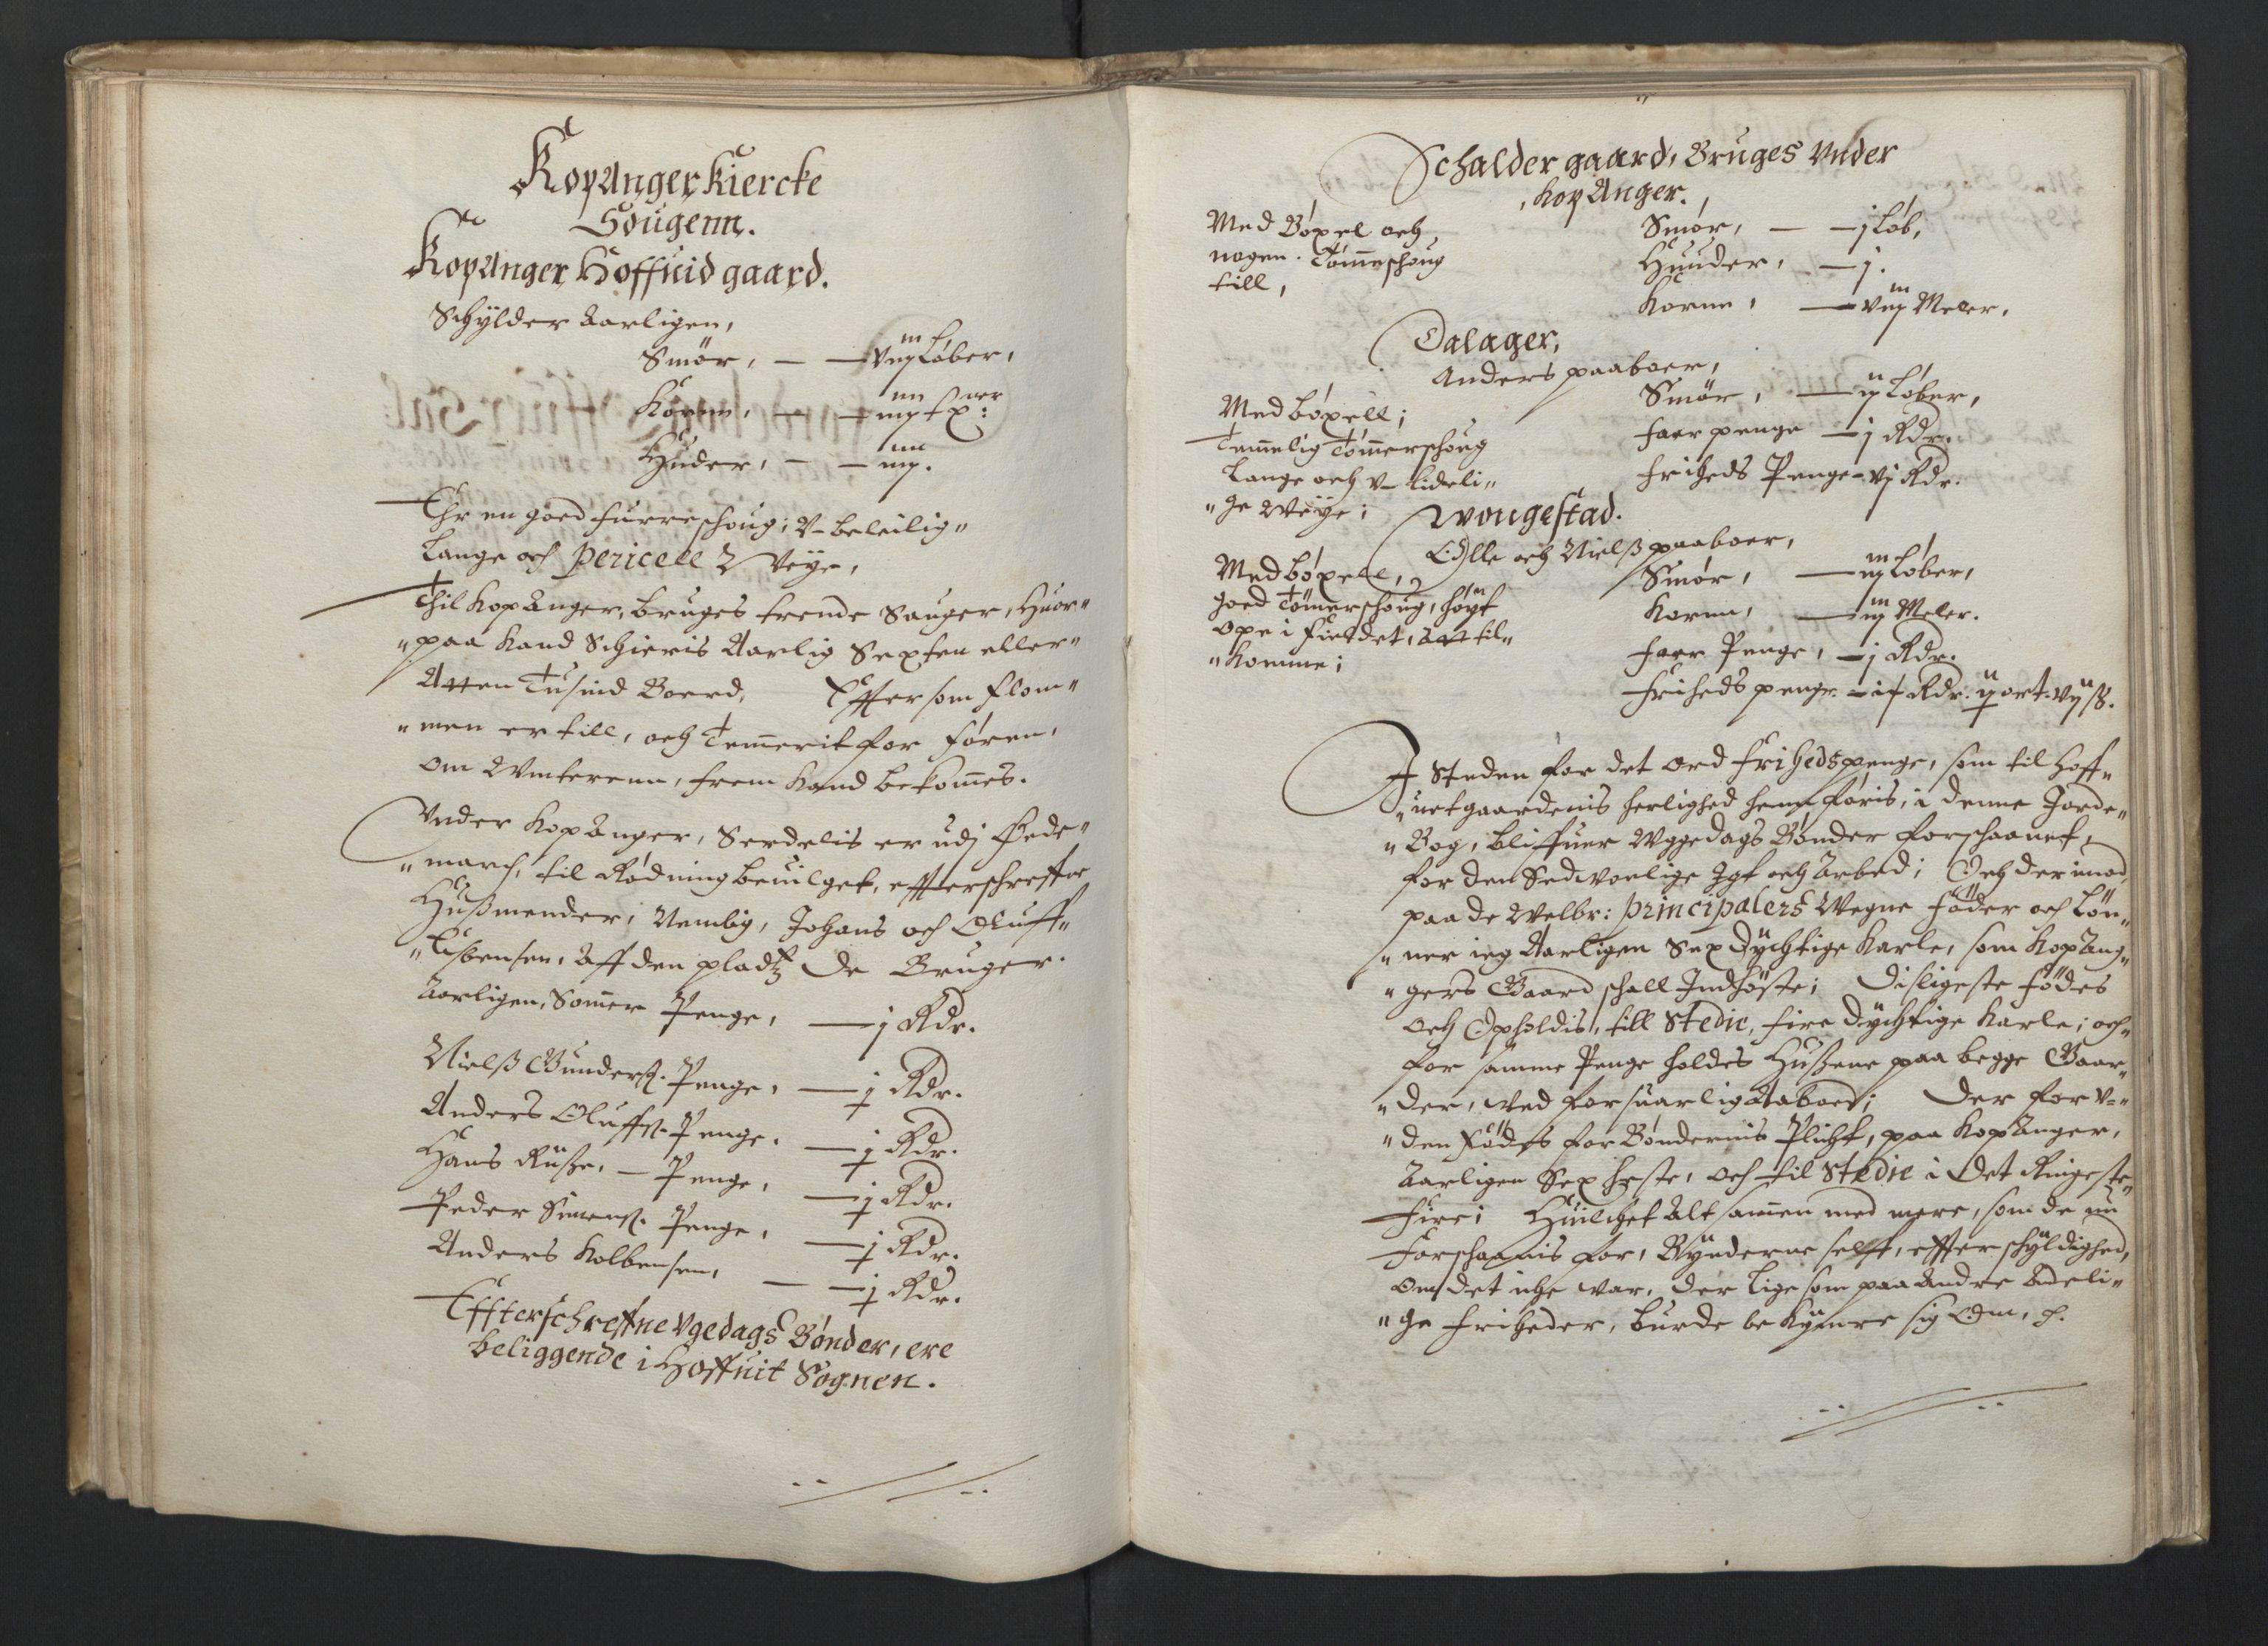 Kopanger Kiercke
Sougenn.
Kopanger Hoffuid gaard.
Schÿlder Aarligen,
Smör, — — viij Løber,
Korn, — —
Huder, — — iiij.
Ehr en goed furreschoug; V-beleilig"
Lange och pericell Veÿe,
Thil Kopanger, bruges trende Sauger, Huor"
"paa Kand Schieris Aarlig Sexten eller"
Atten Tusind Boerd, Effter som flom"
"men er till, och Tem̄erit for føren,
om Winterenn, frem Kand bekom̄es.
Vnder Kopanger, Serdelis er udj Ehede"
"march, til Rødning beuilget, effterschreffne
Hußmender, Nemblig, Johans och Oluff"
"Esbensen, Aff den pladtz de Bruger.
Aarligen, Som̄er Penge, — j Rdr.
Nielß Gunderß. Penge, — j Rdr.
Anders Oluffß. Penge. — j Rdr.
Hans Rüße, — Penge, — j Rdr.
Peder Simenß. Penge, — j Rdr.
Anders Kolbensen, — — j Rdr.
Effterschreffne Vgedags Bønder, ere
beliggende i Hoffuit Sognen.
Schalder gaard, Bruges Vnder
Kopanger.
Med Bøxel och
nogen Tøm̄eschoug
till,
Smør, — — j Løb,
Huuder, — j.
Kornn, — viij Meler,
Dalager,
Anders paaboer,
Med bøxell;
Tem̄elig Tøm̄erschoug
Lange och V-lideli"
"ge Weÿe;
Smör, — ij Løber,
faer penge — j Rdr.
friheds Penge - vj Rdr.
Wongestad.
Olle och Nielß paaboer,
Med bøxell,
goed Tøm̄erschoug, høyt
ope i Fieldet, at til"
"Komme;
Smør, — iij Løber,
Kornn, — iij Meler.
faer Penge, — j Rdr.
friheds penge — Rdr. ij ort. vij ß.
I Steden for det ord frihedspenge, som til Hoff"
"uetgaardenis herlighed henn føris, i denne Jorde"
"Bog, bliffuer Wggedags Bønder forschaanet,
for den Sedwonlige Jgt och Arbed; Och der imod,
paa de Welbr: principalers Wegne föder och løn"
"ner ieg Aarligen Sex Dÿchtige Karle, som Kopang"
"gers Gaard schall Indhøste; Disligeste födes
och Opholdis, till Stedie, fire dÿchtige Karle; och"
for samme Penge holdes Hußene paa begge Gaar"
"der, ved forsuarlig Aaboed; Der for V="
"den Födes for Bøndernis Plicht, paa Kopanger,
Aarligen Sex heste, och til Stedie i det Ringeste,
fire; Huilchet Alt sam̄en med mere, som de nu
forschaanis for, Bÿnderne selff, effter schÿldighed,
om det iche war, der lige som paa Andre Adeli"
"ge friheder, burde be Kÿmre sig Om, p.